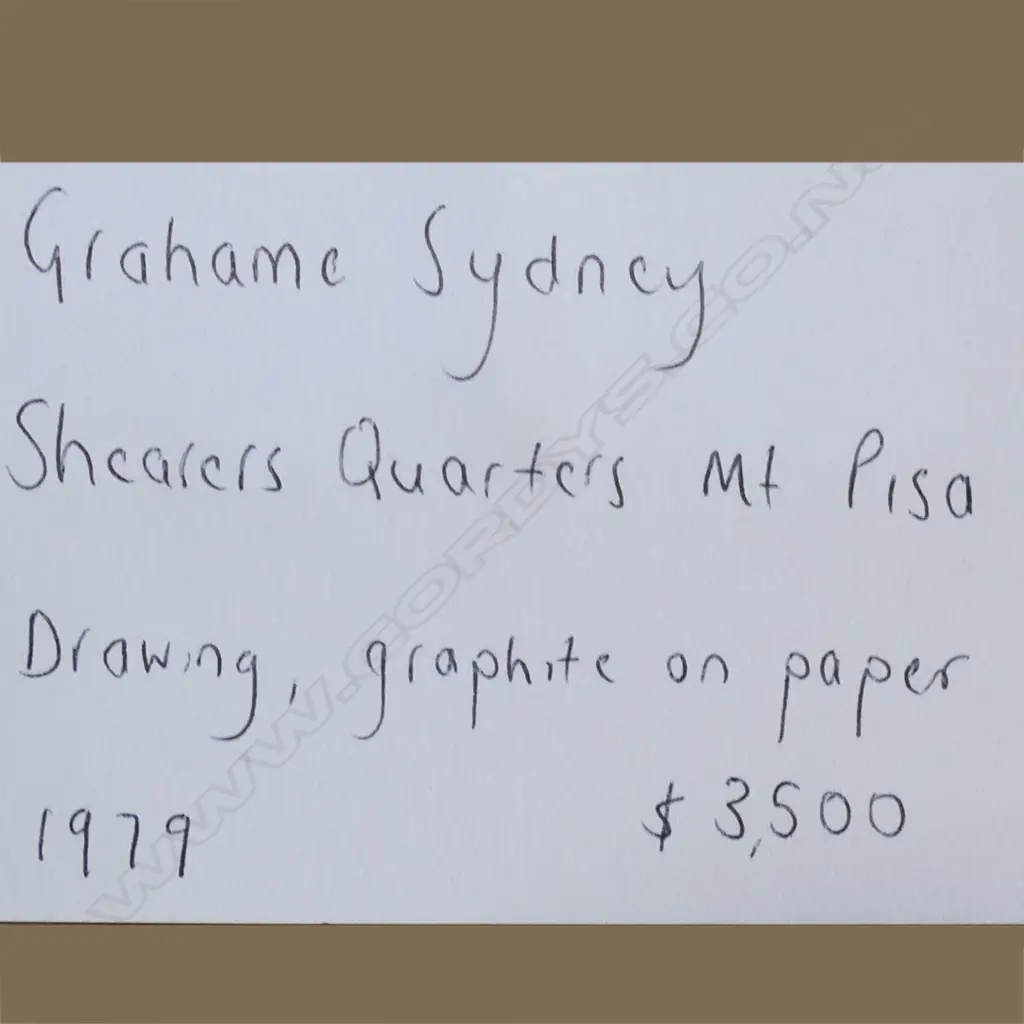 Grahame Sydney
Shearers Quarters Mt Pisa
Drawing, graphite on paper
1979 $3,500
WWW.CORDYS.CO.NZ